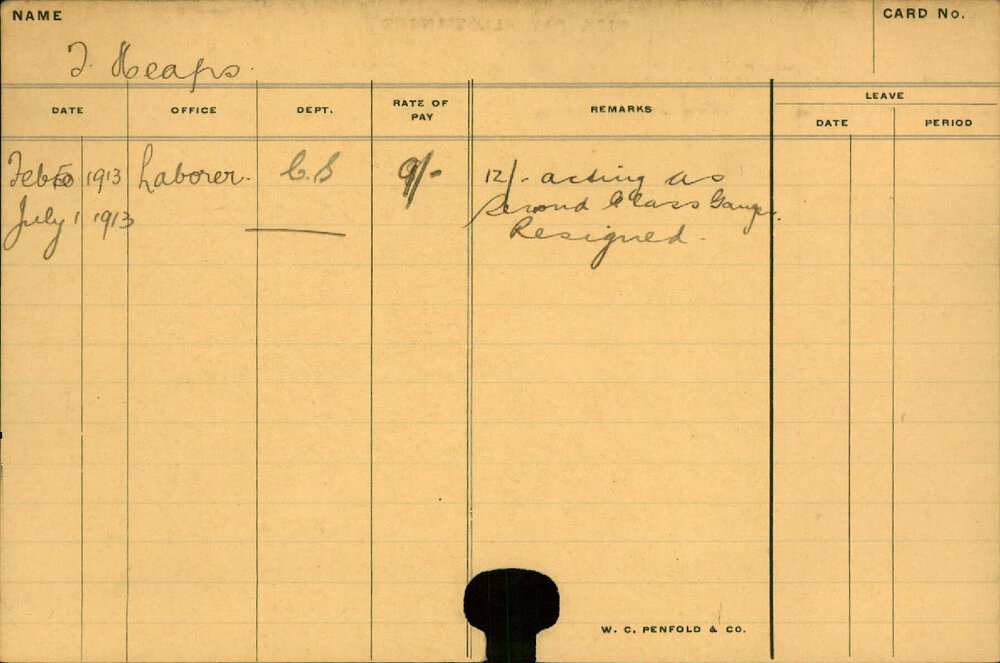 NAME
CARD No.
J. Heaps.
DATE OFFICE DEPT. RATE OF PAY REMARKS LEAVE
DATE PERIOD
Feb 1913 Laborer. C.S 9/- 12/- acting as
July 1 1913 Second Class Ganger.
Resigned.
W. C. PENFOLD & CO.